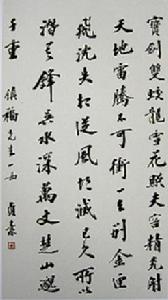 寶劍雙蛟龍雪花照芙蓉精光射
天地雷騰不可衝一去別金匣
飛沉失相從風胡滅已久所以
潛其鋒吳水深萬丈楚山邈
千重